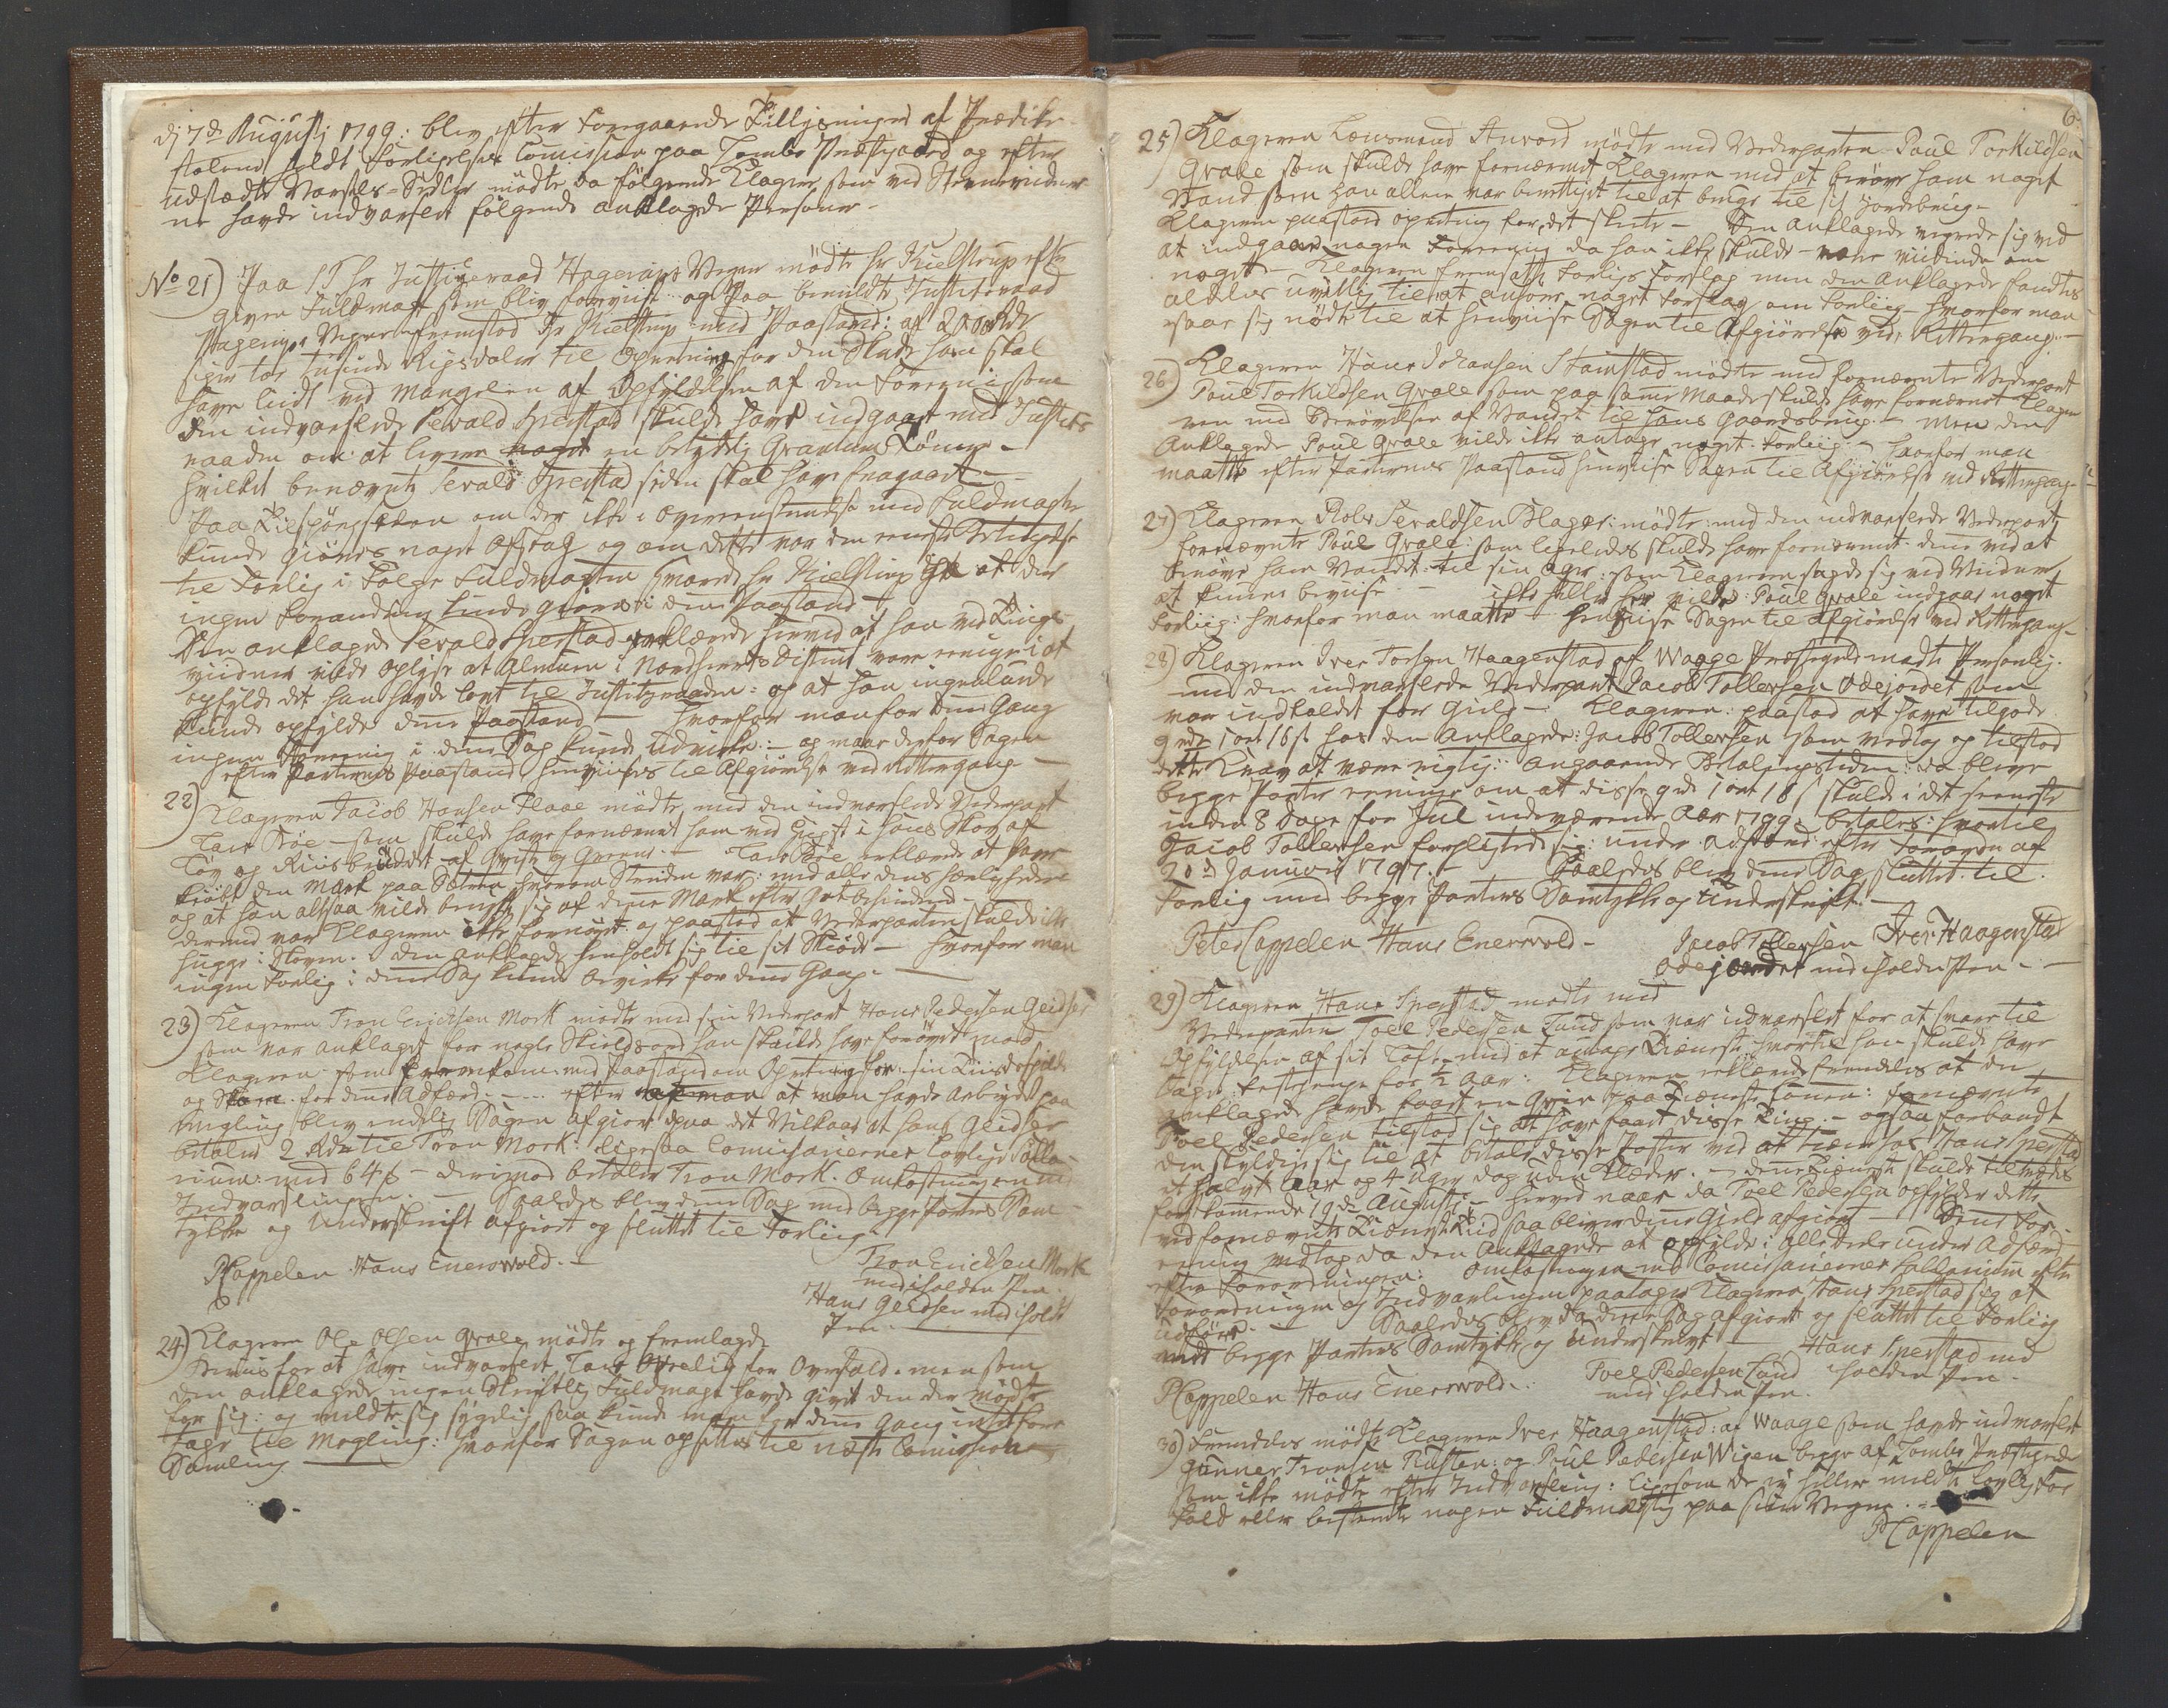 dj 7de Augusti 1799: blev efter foregaaende Tillysninger af Prædike-
stolene holdt Forligelses Comission paa Lombs Præstgaard og efter
udstædte Varsels-Sedler mödte da følgende Klagere, som ved Stevnevidner-
ne havde indvarslet følgende anklagede Personer.
No 21) Paa S T Hr Justiceraad Hagerups Vegne mödte Hr Kielstrup efter
given Fuldmagt som blev foreviist og paa bemeldte Justitzraad
Hagerups Vegne fremstod Hr Kielstrup med Paastand: af 2000 Rdr
siger toe tusinde Rigsdaler til Opretning for den Skade han skal
have lidt ved Mangelen af Opfyldelsen af den Forening som
den indvarslede Sevald Sperstad skulde have indgaaet med Justits
raaden om at levere noget en betydelig Qvantum Tömmer
hvilket benævnte Sevald Sperstad siden skal have fragaaet
Paa Tilspörgselen om der ikke i Overeensstemmelse med Fuldmagten
kunde giöres noget Afslag og om dette var den eneste Betingelse
til Forlig i Fölge Fuldmagten svarede Hr Kielstrup at der
ingen Forandring kunde giöres i denne Paastand
Den anklagede Sevald Sperstad erklærede herved at han ved Tings-
vidner vilde oplyse at Almuen i Nordherets District vare eenige i at
opfylde det han havde lovet til Justitzraaden: og at han ingenlunde
kunde opfylde denne Paastand - hvorfor man for denne Gang
ingen Forening i denne Sag kunde udvirke: - og maae derfor Sagen
efter Parternes Paastand henviises til Afgiörelse ved Rettergang
22) Klageren Jacob Hansen Flaae mödte med den indvarslede Vederpart
Lars Böe - som skulde have fornærmet ham ved Hugst i hans Skov af
Löv og Riis brudet af Qviste og Greene. - Lars Böe erklærede at have
kiöbt den Mark paa Sætren hvorom Striden var: med alle dens Herligheder
og at han altsaa vilde benytte sig af denne Mark efter Godtbefindende
dermed var Klageren ikke fornöiet og paastod at Vederparten skulde ikke
hugge i Skoven. den anklagede henholdt sig til sit Skiöde - hvorfor man
ingen Forlig i denne Sag kunde bevirke for denne Gang. -
23) Klageren Tron Erichsen Mork mödte med sin Vederpart Hans Pedersen Geidser
som var anklaget for nogle Skieldsord han skulde have forövet mod
Klageren som fremkom med Paastand om Opretning for sin Tiidsspilde
og Skam for denne Adfærd: - efter af man at man havde arbejdet paa
Megling blev endelig Sagen afgiort paa det Vilkaar at Hans Geidser
betaler 2 Rdr til Tron Mork: ligesaa Comissariernes lovlige Salla-
rium: med 64 s - derimod betaler Tron Mork Omkostningen med
Indvarslingen. - saaledes blev denne Sag med begge Parters Sam-
tykke og Underskrift afgiort og sluttet til Forlig.
PCappelen Hans Enersvold. Tron Erichsen Mork
med iholden Pen.
Hans Geidsen med iholdt
Pen.
24) Klageren Ole Olsen Qvale mödte og fremlagde
Beviis for at have indvarslet Lars for Overfald. men som
den anklagede ingen skriftlig Fuldmagt havde givet den der mödte
for sig: og meldte sig sygelig saa kunde man for denne Gang intet fore-
tage til Megling: hvorfor Sagen opsættes til næste Comissions
Samling
6.
25) Klageren Lensmand Anvord mödte med Vederparten Paul Torkildsen
Qvale som skulde have fornærmet Klageren med at beröve ham noget
Vand som han allene var berettiget til at bruge til sit Jordebrug.
Klageren paastod opretning for det skeete - Den anklagede vegrede sig ved
at indgaae nogen Forening da han ikke skulde være vidende om
noget - Klageren fremsatte Forligs Forslag men den anklagede fandtes
aldeles uvillig til at anhöre noget Forslag om Forliig - hvorfor man
saae sig nödt til at henviise Sagen til Afgiörelse ved Rettergang.
26) Klageren Hans Johansen Stamstad mödte med fornævnte Vederpart
Paul Torkildsen Qvale som paa samme Maade skulde have fornærmet Klage-
ren med Berövelse af Vandet til hans Gaardsbrug. - Men den
Anklagede Poul Qvale vilde ikke antage noget Forliig. - hvorfor man
maatte efter Parternes Paastand henviise Sagen til Afgiörelse ved Rettergang
27) Klageren Rolv Sevaldsen Blager: mödte med den indvarslede Vederpart
fornævnte Poul Qvale: som ligeledes skulde have fornærmet denne ved at
beröve ham Vandet til sin Ager: som Klageren sagde sig ved Vidner
at kunne beviise - ikke heller her vilde Poul Qvale indgaae noget
Forliig: hvorfor man maatte henviise Sagen til Afgiörelse ved Rettergang
28) Klageren Iver Torsen Haagenstad af Waage Præstegield mödte Personlig.
med den indvarslede Vederpart Jacob Tollevsen Ödejordet som
var indkaldet for Gield - Klageren: paastod at have tilgode
9 rdr 1 ort 16 s. hos den Anklagede: Jacob Tollevsen som vedtog og tilstod
dette Krav at være rigtig: angaaende Betalingstiden: da bleve
begge Parter eenige om at disse 9 rdr 1 ort 16 s skulde i det seeneste
inden 8 Dage for Juul indeværende Aar 1799. betales: hvortil
Jacob Tollevsen forpligtede sig: under Adfærd efter Forordn af
20de Januari 1797. - Saaledes blev denne Sag sluttet til
Forlig med begge Parters Samtykke og Underskrift. -
Peter Cappelen Hans Enersvold - Jacob Tollevsen Iver Haagenstad
Ödejordet med iholden Pen. -
29) Klageren Hans Sperstad mödte med
Vederparten Joel Pedersen Lund som var indvarslet for at svare til
Opfyldelsen af sit Löfte med at antage Tieneste hvortil han skulde have
taget Fæstepenge for ½ Aar: Klageren erklærede fremdeles at den
anklagede havde faaet en Qvie paa Tieneste Lönnen: fornævnte
Joel Pedersen tilstod sig at have faaet disse Ting. - ogsaa forbandt
den skyldige sig til at betale disse Poster ved at tiene hos Hans Sperstad
et halvt Aar og 4 Uger dog uden Klæder. - denne Tieneste skulde tiltrædes
førstkomende 19de Augusti - herved naar da Joel Pedersen opfylder dette
ved fornævnte Tieneste Tiid saa bliver denne Gield afgiort - denne For-
ening vedtog da den Anklagede at opfylde i alle Deele under Adfærd
efter Forordningen: Omkostningen med Comissariernes Sallarium efter
Forordningen og Indvarslingen paatager Klageren Hans Sperstad sig at
udföre. - Saaledes blev da denne Sag afgiort og sluttet til Forliig
med begge Parters Samtykke og Underskrivt - Hans Sperstad med
PCappelen Hans Enersvold. Joel Pedersen Lund iholden Pen.
med iholden Pen.
30) Fremdeles mödte Klageren Iver Haagenstad: af Waage som havde indvarslet
Gunner Tronsen Rusten: og Poul Pedersen Wigen begge af Lombs Præstegield
som ikke mödte efter Indvarsling: ligesom de ej heller meldte lovlig For-
fald eller bestemte nogen Fuldmægtig paa sine Vegne. -
PCappelen